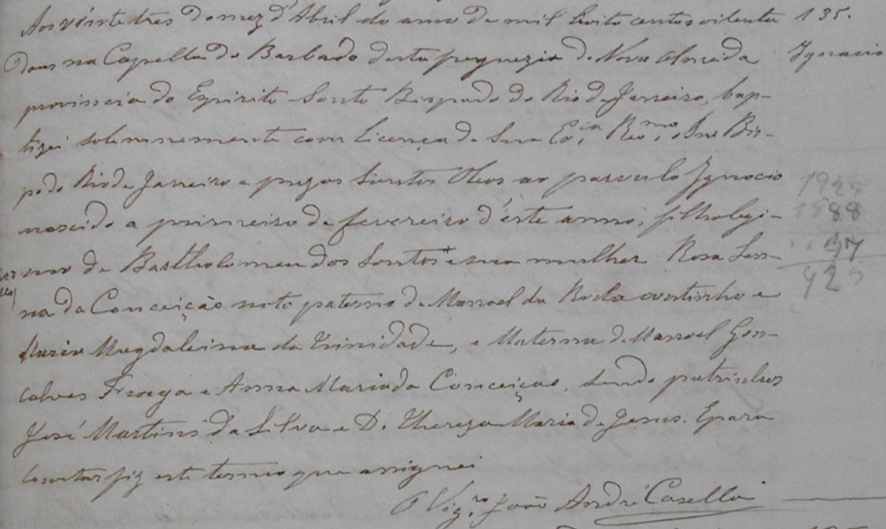 Aos vinte tres do mez d'Abril do anno de mil Euito centos oitenta 135.
dous na Capella do Barbado desta freguezia de Nova Almeida Ignacio
provincia do Espirito Santo Bispado do Rio de Janeiro, bap-
tizei solemnemente com Licença de Sua Ex.cia Rev.ma, o Snr Bis-
po do Rio de Janeiro e puz os Santos Oleos ao parvulo Ignacio
nascido a primeiro de fevereiro d'este anno, filho legi-
mo de Bartholomeu dos Santos* e sua mulher Rosa
na da Conceição neto paterno de Manoel da Rocha Coutinho e
Maria Magdaleina da Trinidade, e Materno de Manoel Gon-
calves Fraga e Anna Maria da Conceição, Sendo padrinhos
José Martins da Silva e D. Thereza Maria de Jesus. E para
constar fiz este termo que assignei
O Vig.ro João André Casella
1888